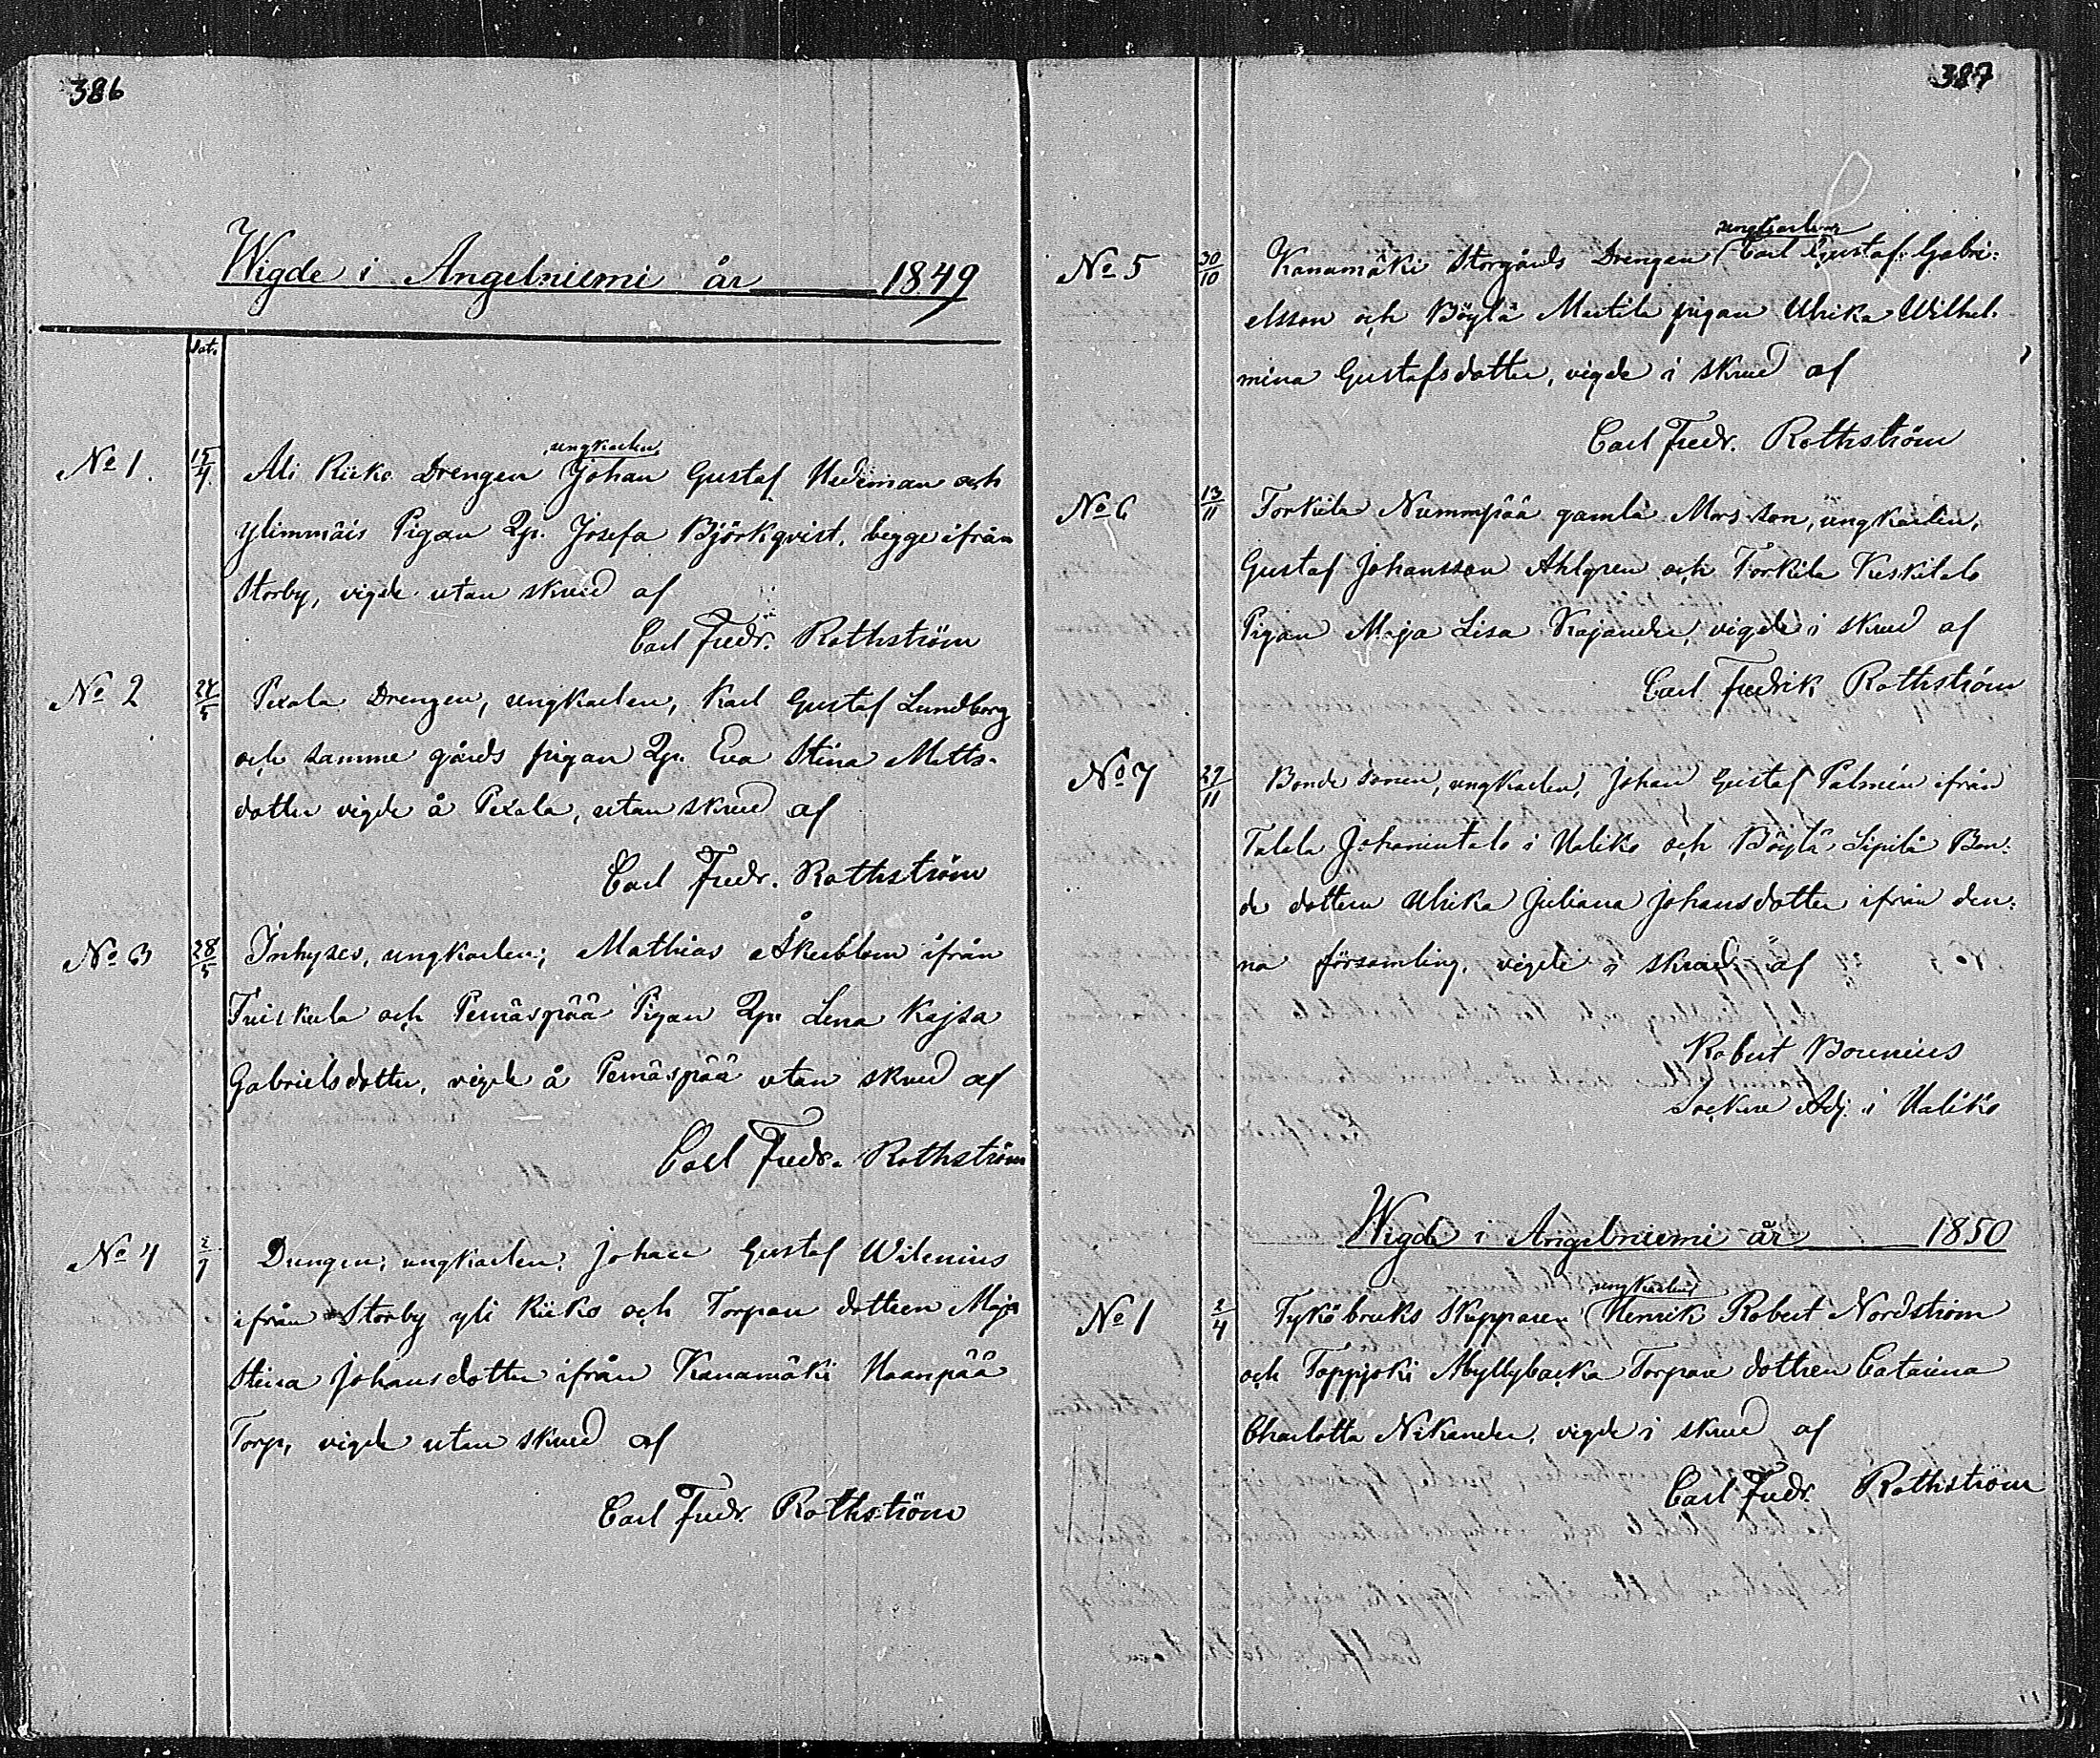 386
Wigde i Angelniemi år 1849
Dat.
No 1. 15/4 Ali Riiko Drengen ungkarlen Johan Gustaf Hedeman och
Ylimmäis Pigan Qp. Josefa Björkqvist, begge ifrån
Storby, vigde utan skrud af
Carl Fredr. Rothström
No 2 24/5 Pexala Drengen, ungkarlen, Karl Gustaf Lundborg
och samme gårds pigan Qp. Eva Stina Matts-
dotter vigde å Pexala, utan skrud af
Carl Fredr. Rothström
No 3 28/5 Inhyses, ungkarlen, Mathias Åkerblom ifrån
Friskula och Pernäspää Pigan Qp. Lena Kajsa
Gabrielsdotter, vigde å Pernäspää utan skrud af
Carl Fredr. Rothström
No 4 2/9 Drengen, ungkarlen, Johan Gustaf Wilenius
ifrån Storby yli Riiko och Torpare dottren Maja
Stina Johansdotter ifrån Kanamäki Haanpää
Torp, vigde utan skrud af
Carl Fredr. Rothström
387
No 5 30/10 Kanamäki Storgårds Drengen ungkarlen Carl Gustaf Gabri-
elsson och Böylä Mattila pigan Ulrika Wilhel-
mina Gustafsdotter, vigde i skrud af
Carl Fredr. Rothström
No 6 13/11 Torkila Nummpää gamla Mors son, ungkarlen,
Gustaf Johansson Ahlgren och Torkila Keskitalo
Pigan Maja Lisa Kajander, vigde i skrud af
Carl Fredrik Rothström
No 7 27/11 Bonde sonen, ungkarlen, Johan Gustaf Palmén ifrån
Talala Johanintalo i Haliko och Böylä Sipilä Bon-
de dottern Ulrika Juliana Johansdotter ifrån den-
na församling, vigde i skrud af
Robert Bonnius
Sockne Adj. i Haliko
Wigde i Angelniemi år 1850
No 1 2/4 Tykö bruks Skepparen ungkarlen Henrik Robert Nordström
och Toppjoki Myllybacka Torpare dottren Catarina
Charlotta Nikander, vigde i skrud af
Carl Fredr. Rothström